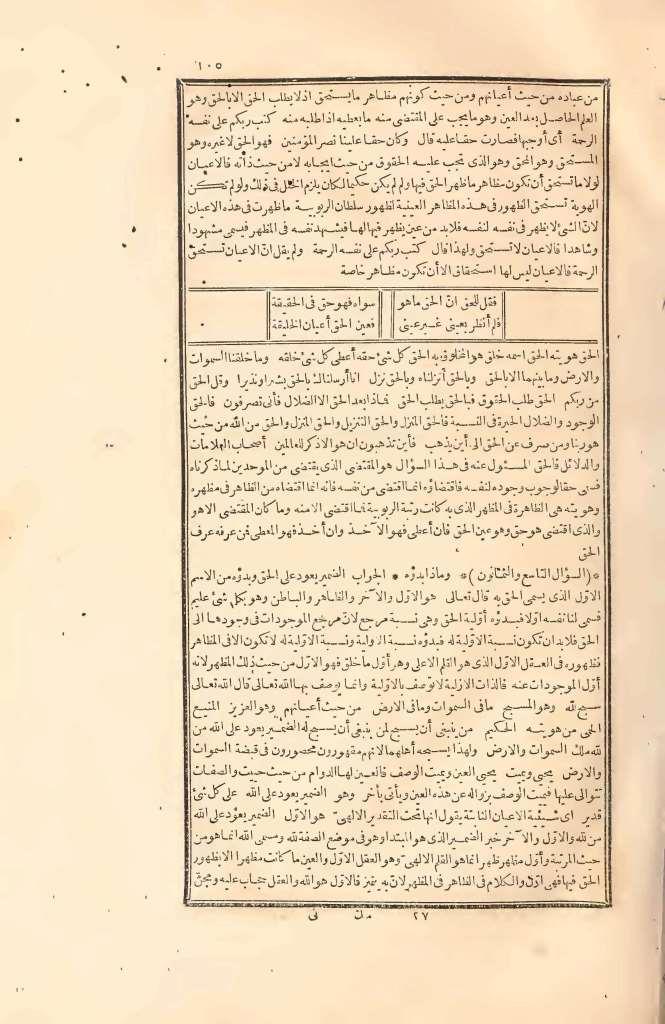 ١٠٥
من عباده من حيث أعيانهم ومن حيث كونهم مظاهر ما يستحق اذ لا يطلب الحق الا بالحق وهو
العلم الحاصل بعد العين وهو ما يجب على المقتضى منه ما يعطيه اذا طلبه منه كتب ربكم على نفسه
الرحمة أى أوجبها فصارت حقا عليه قال وكان حقا علينا نصر المؤمنين فهو الحق لا غيره وهو
المستحق وهو المحق وهو الذى تجب عليه الحقوق من حيث ايجابه لا من حيث ذاته فالاعيان
لولا ما تستحق أن تكون مظاهر ما ظهر الحق فيها ولو لم يكن حكيما لكان يلزم الخلل فى ذلك ولو لم تكن
الهوية تستحق الظهور فى هذه المظاهر العينية لظهور سلطان الربوبية ما ظهرت فى هذه الاعيان
لان الشئ لا يظهر فى نفسه لنفسه فلابد من عين يظهر فيها لها فيشهد نفسه فى المظهر فيسمى مشهودا
وشاهدا فالاعيان لا تستحق ولهذا قال كتب ربكم على نفسه الرحمة ولم يقل ان الاعيان تستحق
الرحمة فالاعيان ليس لها استحقاق الا أن تكون مظاهر خاصة
فقل للحق ان الحق ما هو سواه فهو حق فى الحقيقة
فلم أنظر بعينى غير عينى فعين الحق أعيان الخليقة
الحق هويته الحق اسمه خلق هو المخلوق به الحق كل شئ حقه أعطى كل شئ خلقه وما خلقنا السموات
والارض وما بينهما الا بالحق وبالحق أنزلناه وبالحق نزل انا أرسلناك بالحق بشيرا ونذيرا وقل الحق
من ربكم الحق طلب الحقوق فبالحق يطلب الحق فماذا بعد الحق الا الضلال فأنى تصرفون فالحق
الوجود والضلال الحيرة فى النسبة فالحق المنزل والحق التنزيل والحق المنزل والحق من الله من حيث
هو ربنا ومن صرف عن الحق الى أين يذهب فأين تذهبون ان هو الا ذكر للعالمين أصحاب العلامات
والدلائل فالحق المسئول عنه فى هذا السؤال هو المقتضى الذى يقتضى من الموحدين لما ذكرناه
فسمى حقا لوجوب وجوده لنفسه فاقتضاؤه انما اقتضى من نفسه فانه انما اقتضاه من الظاهر فى مظهره
وهويته هى الظاهرة فى المظهر الذى به كانت رتبة الربوبية فما اقتضى الا منه وما كان المقتضى الا هو
والذى اقتضى هو حق وهو عين الحق فان أعطى فهو الآخذ وان أخذ فهو المعطى فمن عرفه عرف
الحق
*(السؤال التاسع والثمانون)* وماذا بدؤه * الجواب الضمير يعود على الحق وبدؤه من الاسم
الاول الذى يسمى الحق به قال تعالى هو الاول والآخر والظاهر والباطن وهو بكل شئ عليم
فسمى لنا نفسه أولا فبدؤه أولية الحق وهى نسبة مرجع لان مرجع الموجودات فى وجودها الى
الحق فلابد ان تكون نسبة الاولية له فبدؤه نسبة الاولية ونسبة الاولية له لا تكون الا فى المظاهر
فظهوره فى العقل الاول الذى هو القلم الاعلى وهو أول ما خلق فهو الاول من حيث ذلك المظهر لانه
أول الموجودات عنه فالذات الازلية لا توصف بالاولية وانما يوصف بها الله تعالى قال الله تعالى
سبح لله وهو المسبح ما فى السموات وما فى الارض من حيث أعيانهم وهو العزيز المنيع
الحمى من هويته الحكيم من ينبغى أن يسبح لمن ينبغى أن يسبح له الضمير يعود على الله من
لله ملك السموات والارض ولهذا يسبحه أهلهما لانهم مقهورون محصورون فى قبضة السموات
والارض يحيى ويميت يحيى العين ويميت الوصف فالعين لها الدوام من حيث حييت والصفات
تتوالى عليها فيميت الوصف بزواله عن هذه العين ويأتى بآخر وهو الضمير يعود على الله على كل شئ
قدير اى شيئية الاعيان الثابتة يقول انها تحت التقدير الالهى هو الاول الضمير يعود على الله
من لله والاول والآخر خبر الضمير الذى هو المبتدا وهو فى موضع الصفة لله ومسمى الله انما هو من
حيث المرتبة وأول مظهر ظهر انما هو القلم الالهى وهو العقل الاول والعين ما كانت مظهرا الا بظهور
الحق فيها فهى أول والكلام فى الظاهر فى المظهر لان به يتميز فالاول هو الله والعقل حجاب عليه ومجن
٢٧ مك نى